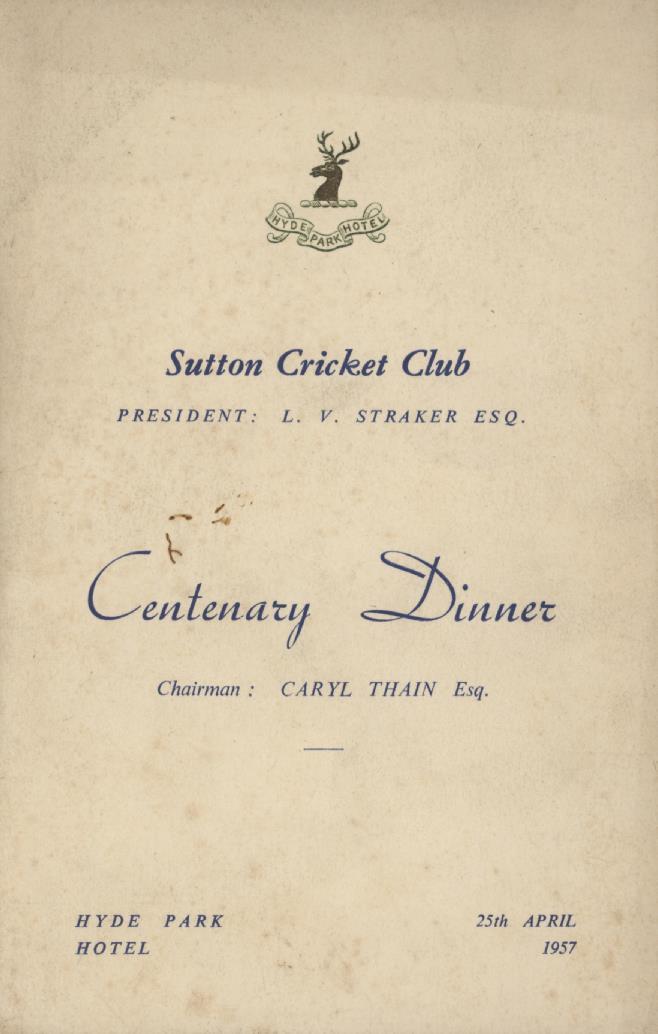 HYDE PARK HOTEL
Sutton Cricket Club
PRESIDENT: L. V. STRAKER ESQ.
Centenary Dinner
Chairman : CARYL THAIN Esq.
HYDE PARK
HOTEL
25th APRIL
1957